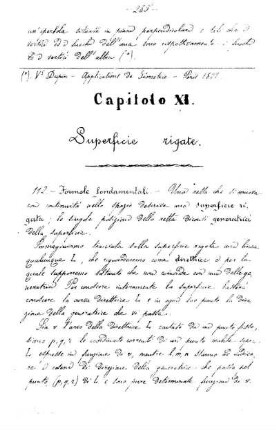 - 265 -
un'iperbola situate in piani perpendicolari e tali che i
vertici ed i fuochi dell'una sono rispettivamente i fuochi
ed i vertici dell'altra (*).
(*) V. Dupin - Applications de Géométrie - Paris 18
Capitolo XI.
Superficie rigate.
112 - Formole fondamentali - Una retta che si muove
con continuità nello spazio descrive una superficie ri
gata; le singole posizioni della retta diconsi generatrici
della superficie.
Immaginiamo tracciata sulla superficie rigata una linea
qualunque L, che riguarderemo come direttrice e per la
quale supporremo soltanto che non coincida con una delle ge
neratrici. Per conoscere interamente la superficie basterà
conoscere la curva direttrice L e in ogni suo punto la dire
zione della generatrice che vi passa.
Sia v l'arco della direttrice L contato da un punto fisso,
siano p, q, r le coordinate correnti di un punto mobile per L
espresse in funzione di v, mentre l, m, n stanno ad indica
re i coseni di direzione della generatrice che parte dal
punto (p, q, r) di L e sono pure determinate funzioni di v.